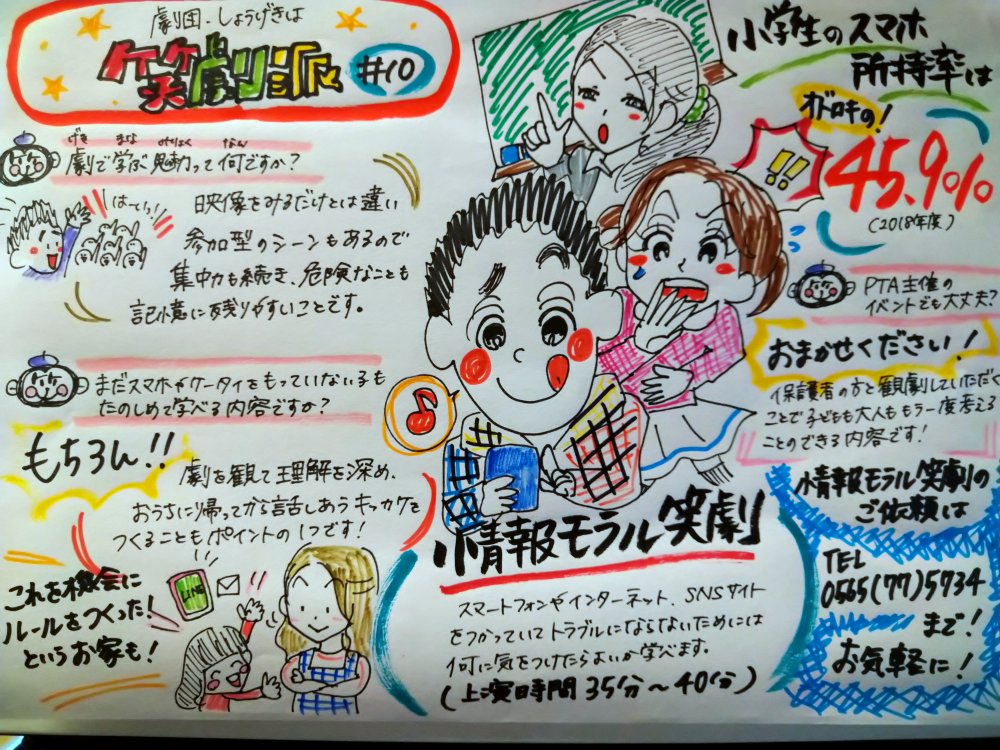 劇団・しょうげきは
ケケケ笑劇リ派
#10
げき まな みりょく なん
劇で学ぶ魅力って何ですか?
は~いっ!
映像をみるだけとは違い
参加型のシーンもあるので
集中力も続き、危険なことも
記憶に残りやすいことです。
まだスマホやケータイをもっていない子も
たのしめて学べる内容ですか?
もちろん!!
劇を観て理解を深め、
おうちに帰ってから話しあうキッカケを
つくることもポイントの1つです!
これを機会に
ルールをつくった!
というお家も!
LINE
小学生のスマホ
所持率は
オドロキの!
!!
45.9%
(2018年度)
PTA主催の
イベントでも大丈夫?
おまかせください!
保護者の方と観劇していただく
ことで子どもも大人ももう一度考える
ことのできる内容です!
情報モラル笑劇
スマートフォンやインターネット、SNSサイト
をつかっていてトラブルにならないためには
何に気をつけたらよいか学べます。
(上演時間 35分~40分)
情報モラル笑劇の
ご依頼は
TEL
0565(77)5734
まで!
お気軽に!